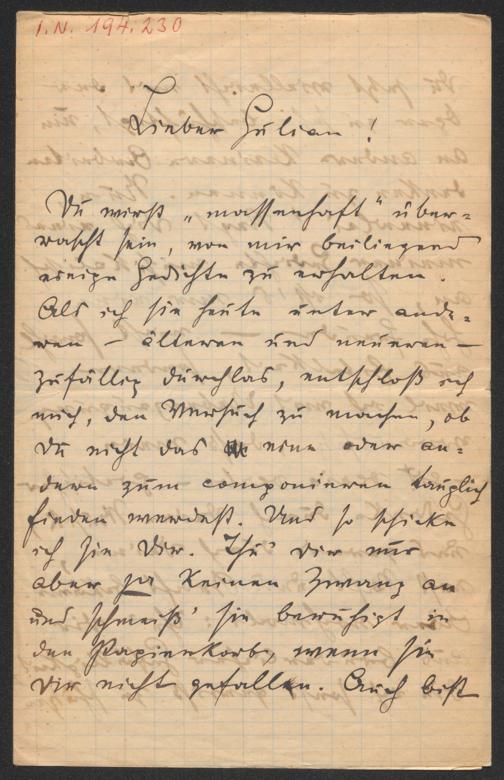 I.N. 194.230
Lieber Julian!
Du wirst „massenhaft" über=
rascht sein, von mir beiliegend
einige Gedichte zu erhalten.
Als ich sie heute unter ande=
ren – älteren und neueren –
zufällig durchlas, entschloß ich
mich, den Versuch zu machen, ob
Du nicht das eine oder an=
dere zum componieren tauglich
finden werdest. Und so schicke
ich sie Dir. Thu' Dir nur
aber ja keinen Zwang an
und schmeiß' sie beruhigt in
den Papierkorb, wenn sie
Dir nicht gefallen. Auch bist